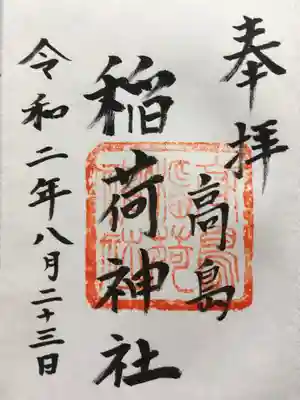 奉拝
高島
稲荷神社
令和二年八月二十三日